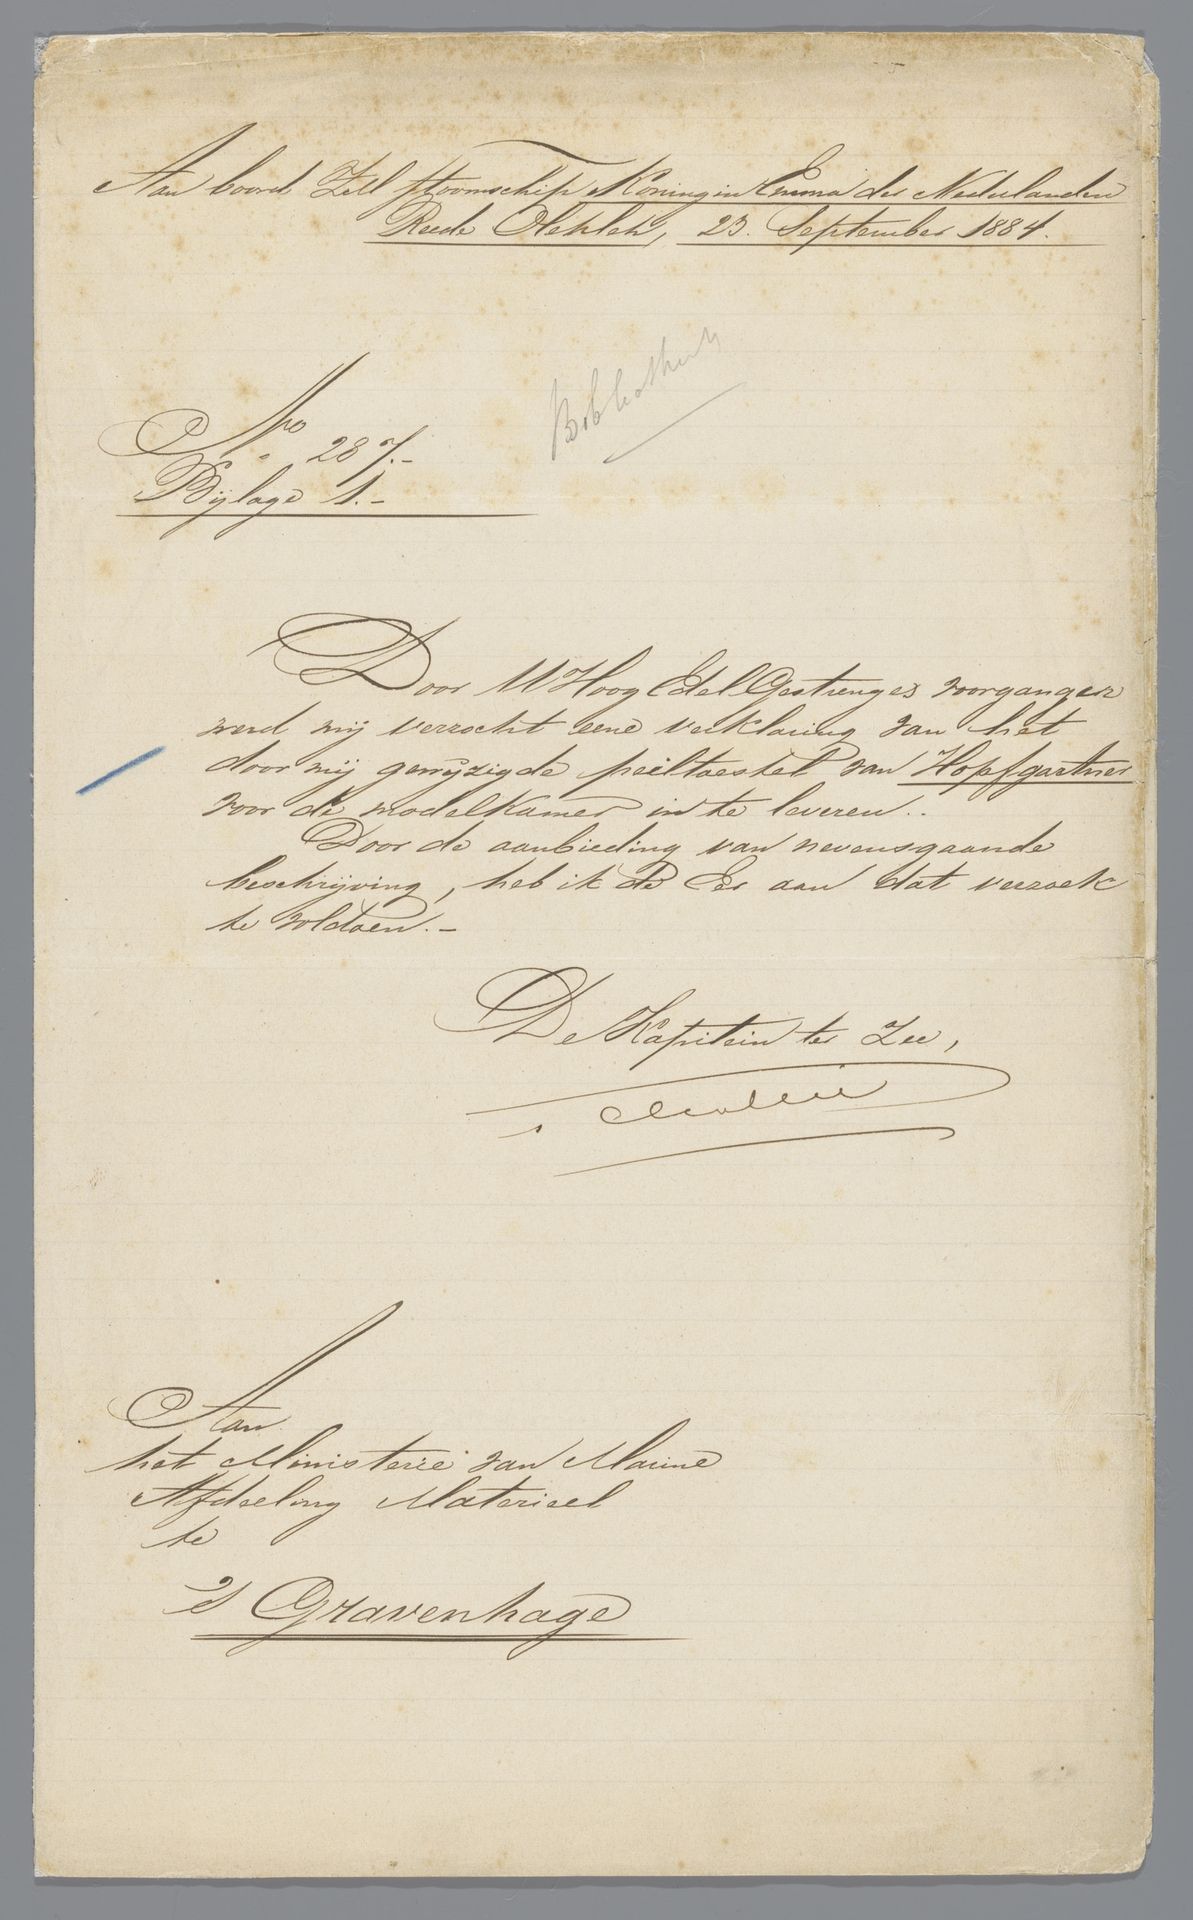 Aan boord ZMs Stoomschip Koningin Emma der Nederlanden
Reede Olehleh, 23. September 1884.
Bibliotheek
No 287.-
Bijlage 1.-
Door UHoogEdelGestrenges voorganger
werd mij verzocht eene verklaring van het
door mij gewijzigde peiltoestel van Hopfgartner
voor de modelkamer in te leveren..
Door de aanbieding van nevensgaande
beschrijving, heb ik de Eer aan dat verzoek
te voldoen.-
De Kapitein ter Zee,
Aan
het Ministerie van Marine
Afdeeling Materieel
te
's Gravenhage